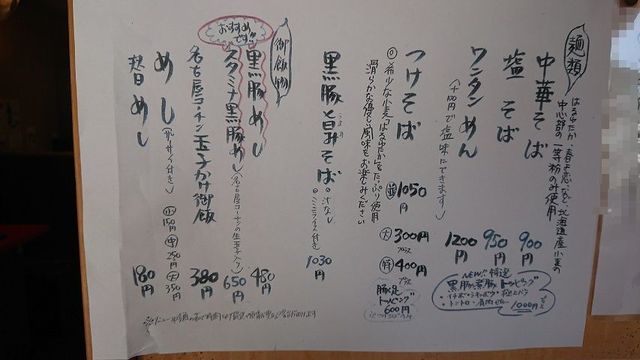 麺類
はるゆたか、春よ恋など、北海道産小麦の
中心部の一等粉のみ使用
中華そば 900円
塩そば 950円
ワンタンめん 1200円
(+100円で塩味にできます)
つけそば 並1050円
大300円プラス
特400円プラス
◎希少な小麦「はるゆたか」をたっぷり使用
滑らかな優しい風味をお楽しみください
豚足トッピング600円
NEW!! 特選
黒豚煮豚トッピング
1000円
黒豚と昆布そば 1030円
◦汁なし
◦ミニライス付き
御飯物
おすすめです!!
黒豚めし 450
スタミナ黒豚めし 650円
(名古屋コーチンの生玉子入り)
名古屋コーチン玉子かけ御飯 380円
めし
小150円 中250円 大350円
替めし 180円